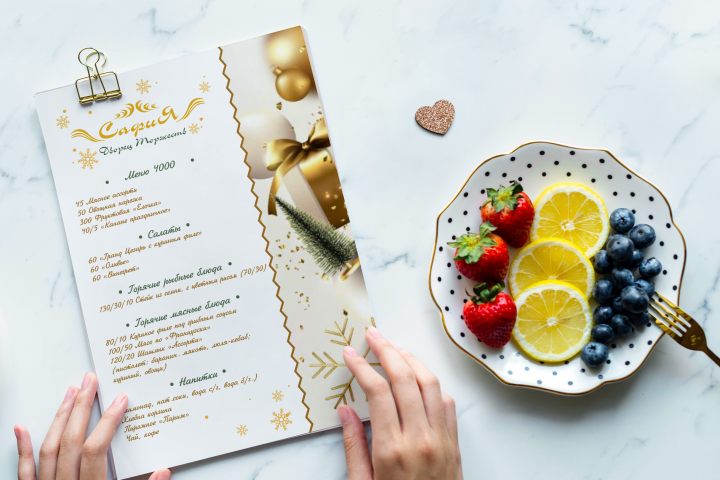 СафиЯ
Дворец Торжеств
• Меню 4000 •
45 Мясное ассорти
50 Овощная нарезка
300 Фруктовая «Елочка»
40/5 «Канапе праздничное»
• Салаты •
60 «Гранд Цезарь с куриным филе»
60 «Оливье»
60 «Винегрет»
• Горячие рыбные блюда •
130/30/10 Стейк из семги, с цветным рисом (70/30)
• Горячие мясные блюда •
80/10 Куриное филе под грибным соусом
100/50 Мясо по «Французски»
120/20 Шашлык «Ассорти»
(пистолет: баранин, мякоть, люля-кебаб;
куриный, овощи)
• Напитки •
нат соки, вода с/г, вода б/г.)
Хлебна корзина
Пирожное «Париж»
Чай, кофе